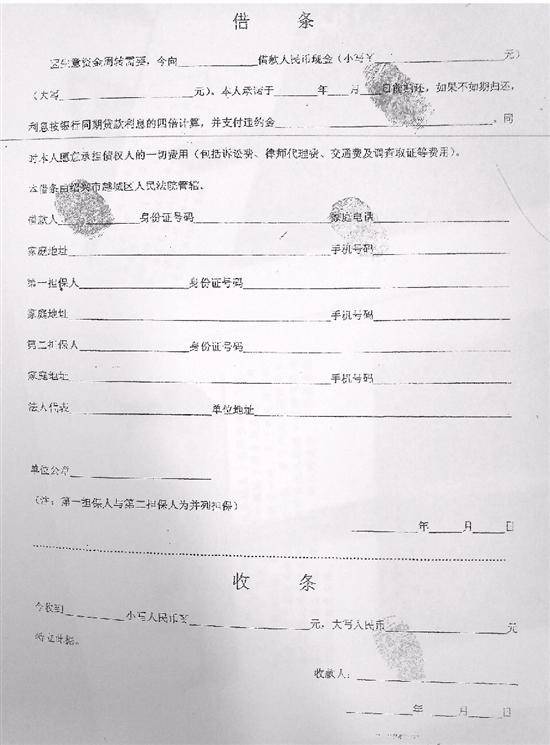 借 条
因生意资金周转需要，今向____________借款人民币现金（小写￥____________元）
（大写____________元）、本人承诺于______年____月____日前归还，如果不如期归还，
利息按银行同期贷款利息的四倍计算，并支付违约金____________。同
时本人愿意承担债权人的一切费用（包括诉讼费、律师代理费、交通费及调查取证等费用）。
本借条由绍兴市越城区人民法院管辖．
借款人____________身份证号码____________家庭电话____________
家庭地址____________手机号码____________
第一担保人____________身份证号码____________
家庭地址____________手机号码____________
第二担保人____________身份证号码____________
家庭地址____________手机号码____________
法人代表____________单位地址____________
单位公章____________
（注：第一担保人与第二担保人为并列担保）
______年____月____日
收 条
今收到________小写人民币￥____________元，大写人民币____________元
特立此据。
收款人：____________
______年____月____日